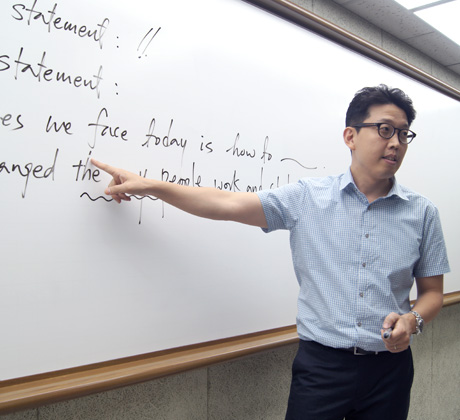 statement : !!
statement :
es we face today is how to
anged the people work and